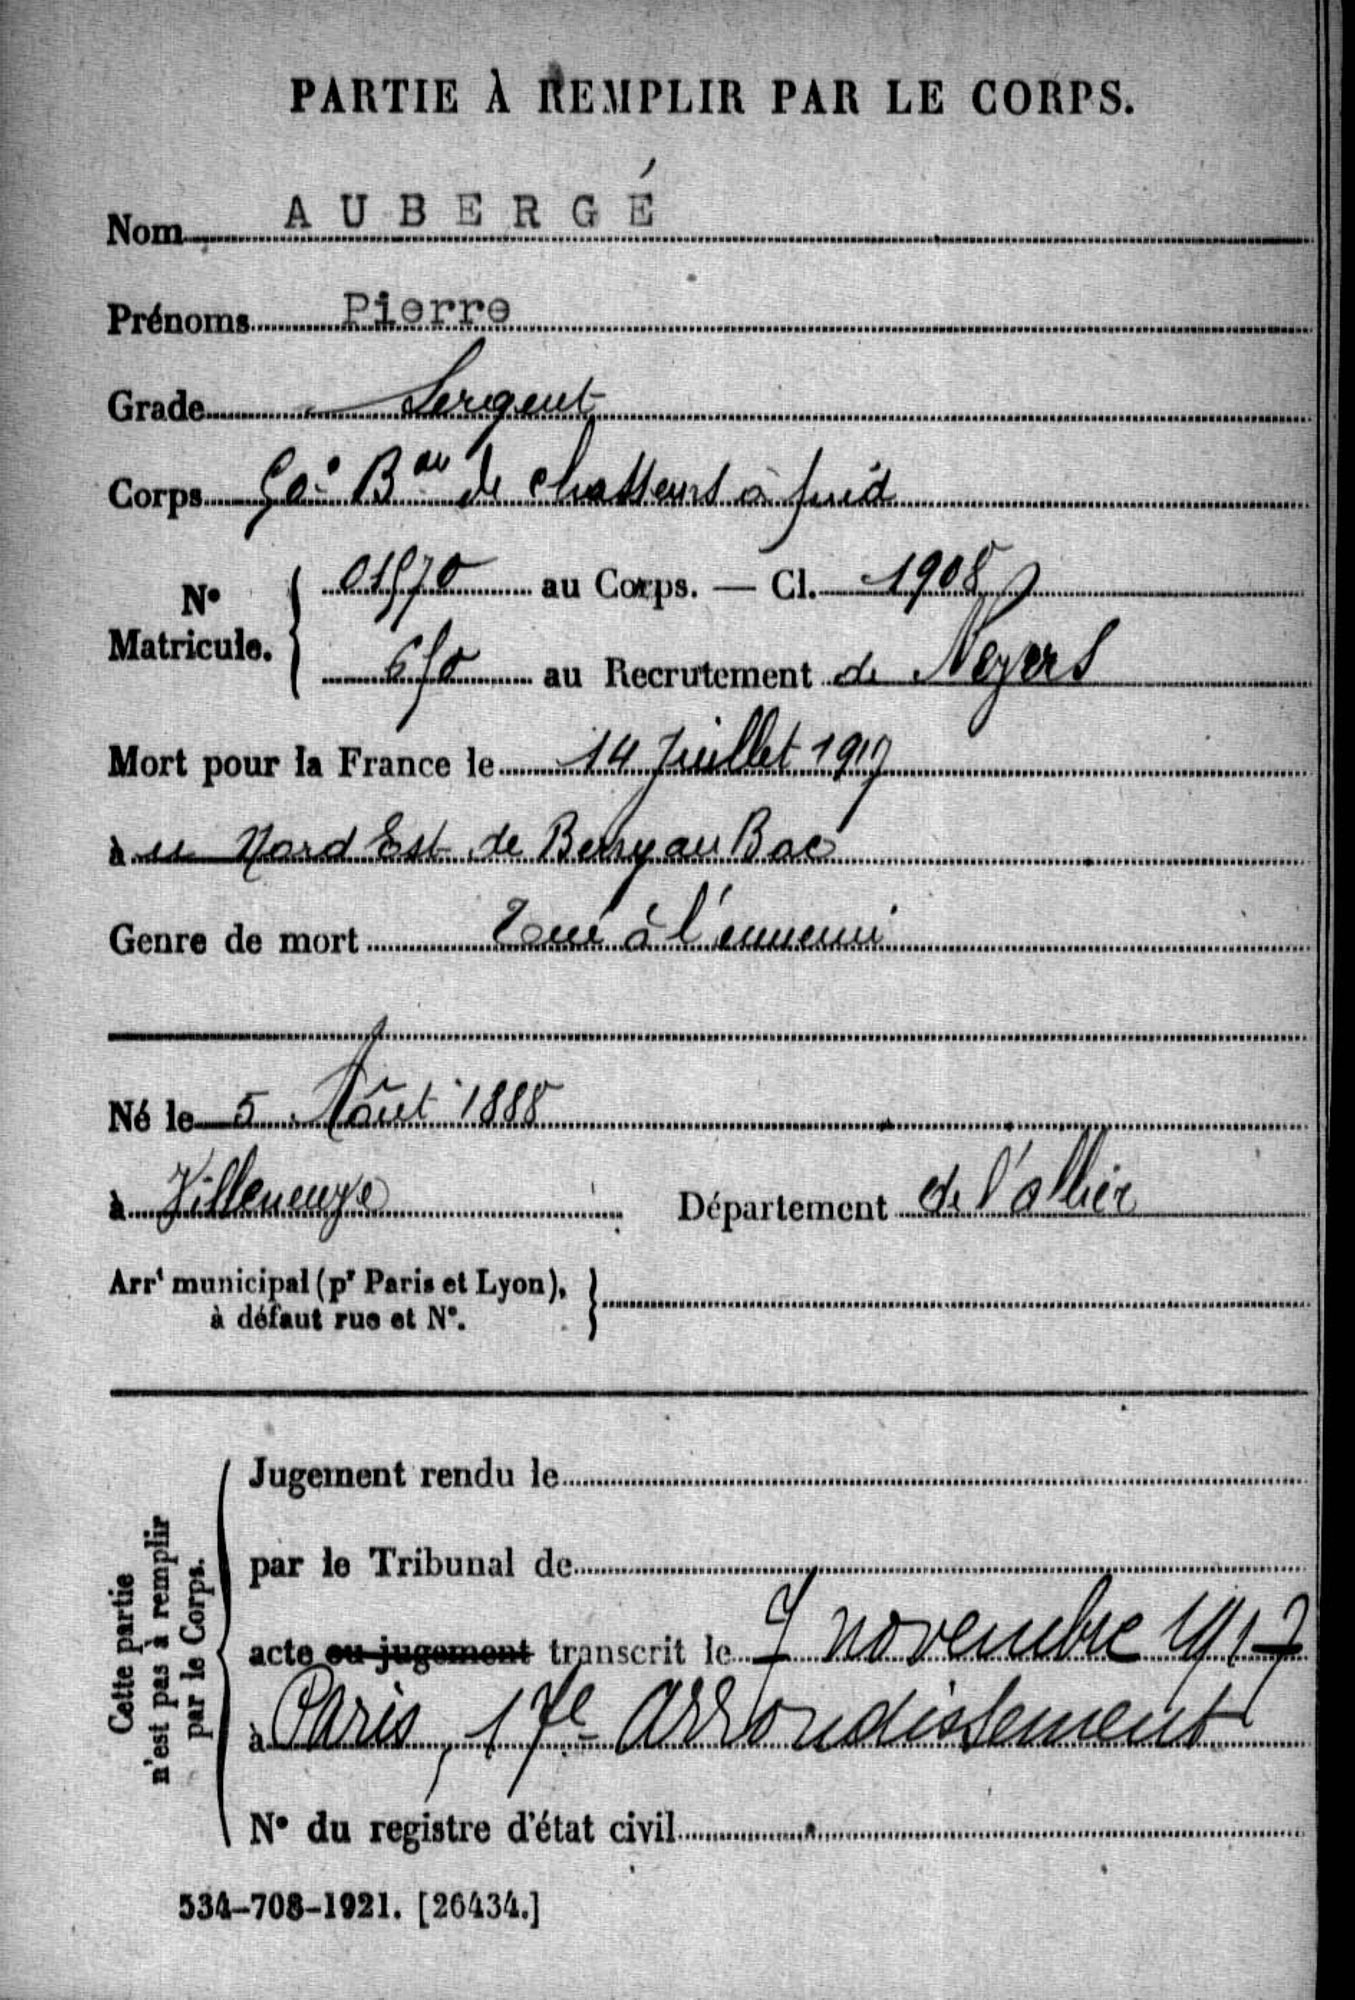 PARTIE À REMPLIR PAR LE CORPS.
Nom AUBERGÉ
Prénoms Pierre
Grade Sergent
Corps 50e Bon de chasseurs à pied
No Matricule. 01570 au Corps. — Cl. 1908
650 au Recrutement de Nevers
Mort pour la France le 14 Juillet 1917
à u Nord Est de Berry au Bac
Genre de mort Tué à l'ennemi
Né le 5 Août 1888
à Villeneuve Département de l'allier
Arrt municipal (pr Paris et Lyon),
à défaut rue et No.
Cette partie
n'est pas à remplir
par le Corps.
Jugement rendu le
par le Tribunal de
acte ou jugement transcrit le 7 novembre 1917
à Paris, 17e arrondissement
No du registre d'état civil
534-708-1921. [26434.]